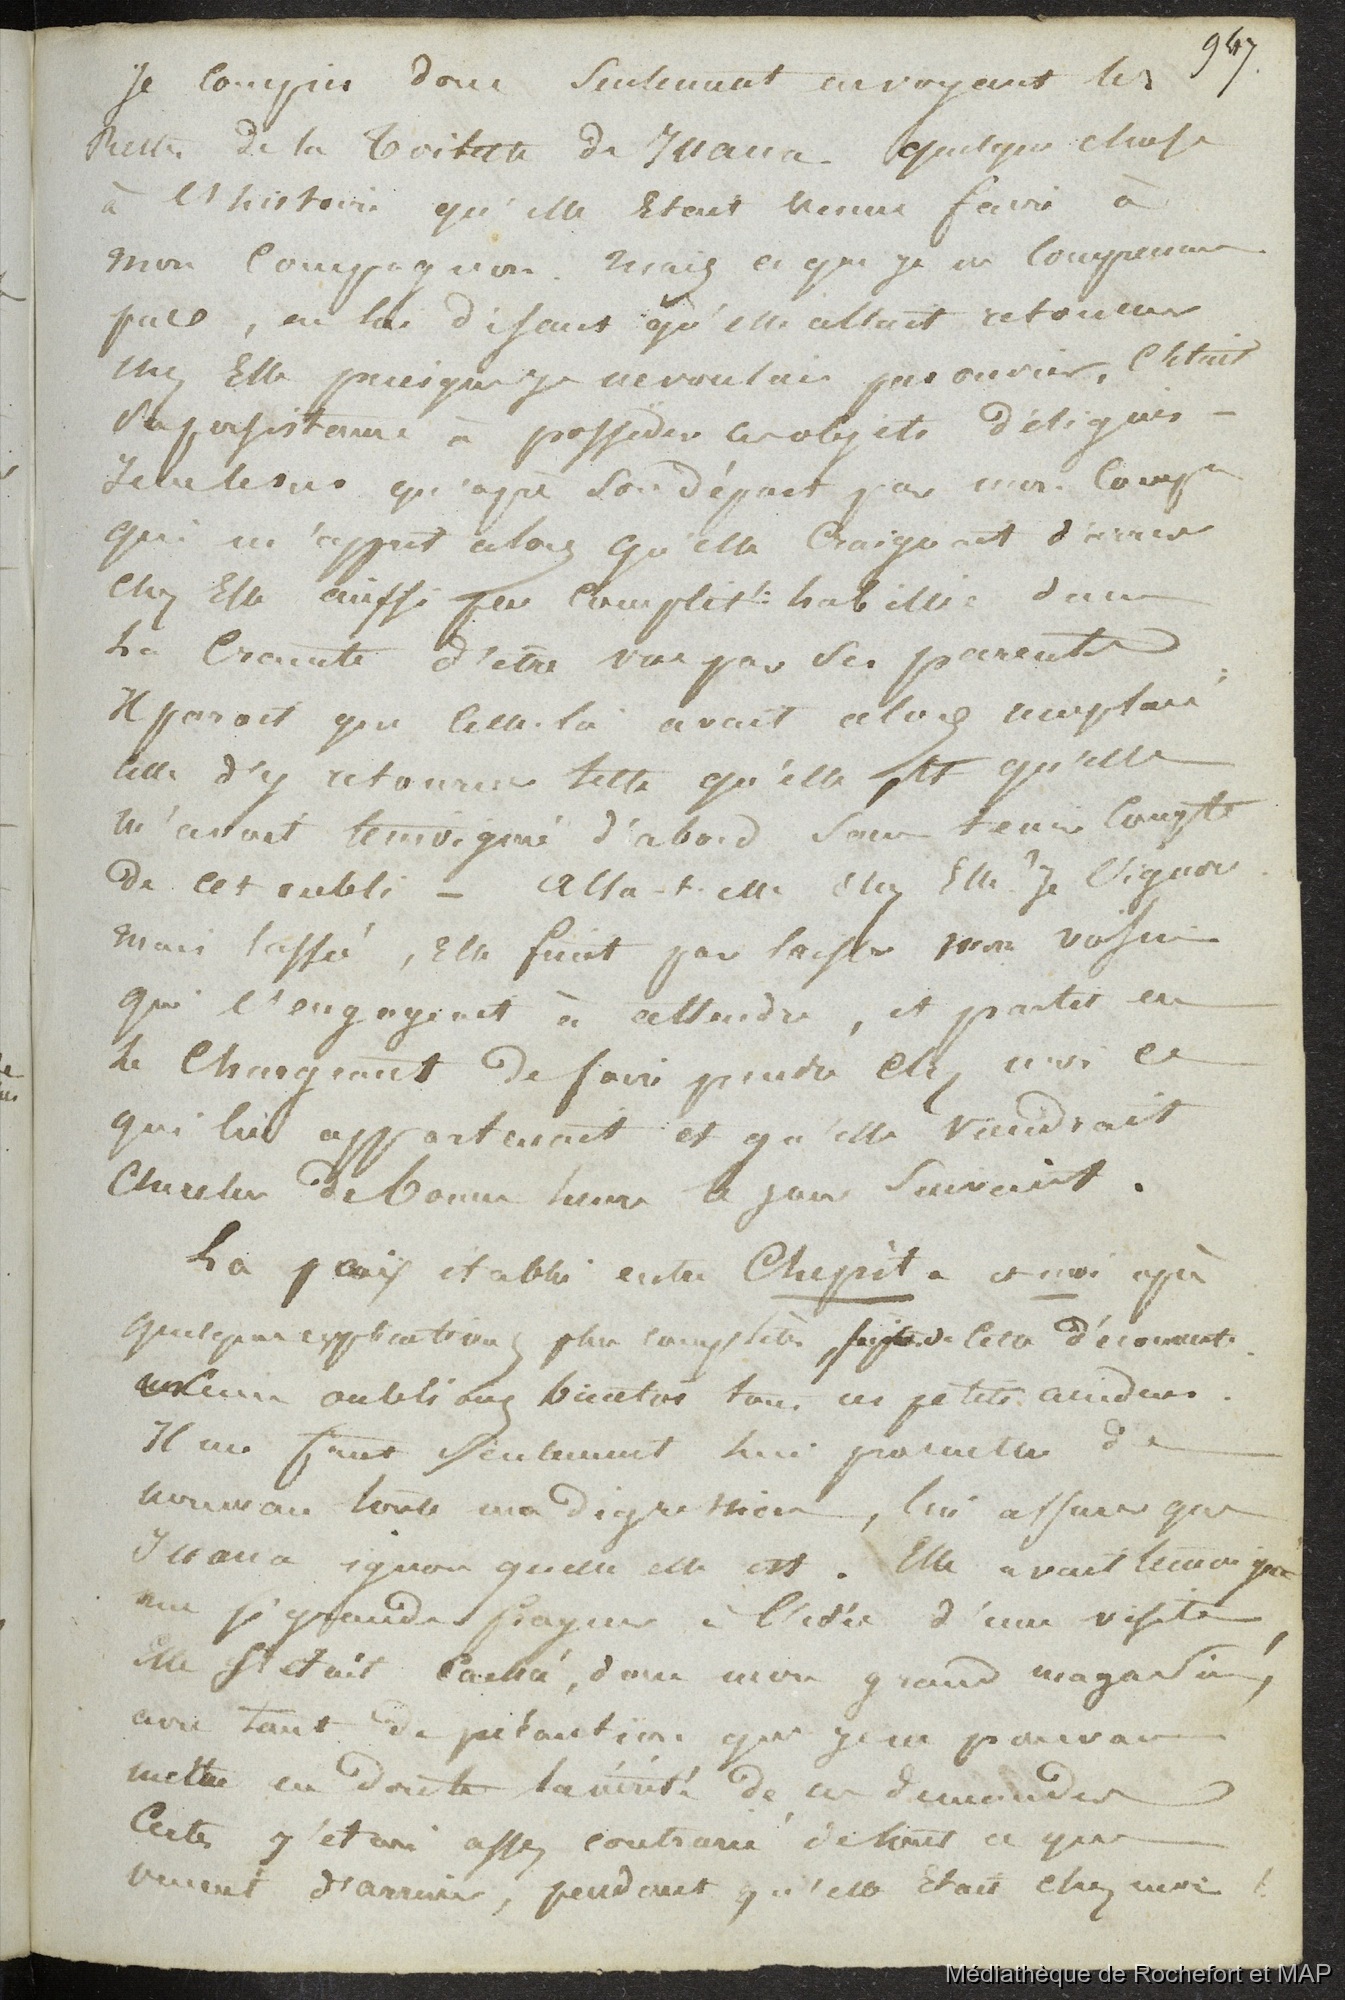 947.
Je compris donc seulement en voyant les
restes de la toilette de Juana quelque chose
à l'histoire qu'elle était venue faire à
mon compagnon. Mais ce que je ne comprenais
pas, en lui disant qu'elle allait retourner
chez Elle puisque je ne voulais pas ouvrir, c'était
sa persistance à posséder les objets désignés —
Je ne le sus qu'après son départ par mon comp
qui m'apprit alors qu'elle craignait d'arriver
chez Elle aussi peu complètt habillée dans
la crainte d'être vue par ses parents
Il parait que celle-là avait alors remplacé
celle d'y retourner telle qu'elle et qu'elle
m'avait témoigné d'abord sans tenir compte
de cet oubli — Alla-t-elle chez Elle? Je l'ignore
mais lassée, elle finit par laisser mon voisin
qui l'engageait à attendre, et partit en
le chargeant de faire prendre chez moi ce
qui lui appartenait et qu'elle viendrait
chercher de bonne heure le jour suivant.
La paix établie entre Chepita et moi après
quelques explications plus complètes, de cela d'écoutant
oublions bientôt tous ces petits incidens.
Il me faut seulement lui promettre de
nouveau toute ma digression, lui assurer que
Juana ignore quelle elle est. Elle avait témoigné
une si grande frayeur à l'idée d'une visite,
Elle s'était cachée, dans mon grand magasin,
avec tant de précaution que je ne pouvais
mettre en doute la vérité de ces demandes
Certes j'étais assez contrarié de tout ce qui
venait d'arriver, pendant qu'elle était chez moi
Médiathèque de Rochefort et MAP